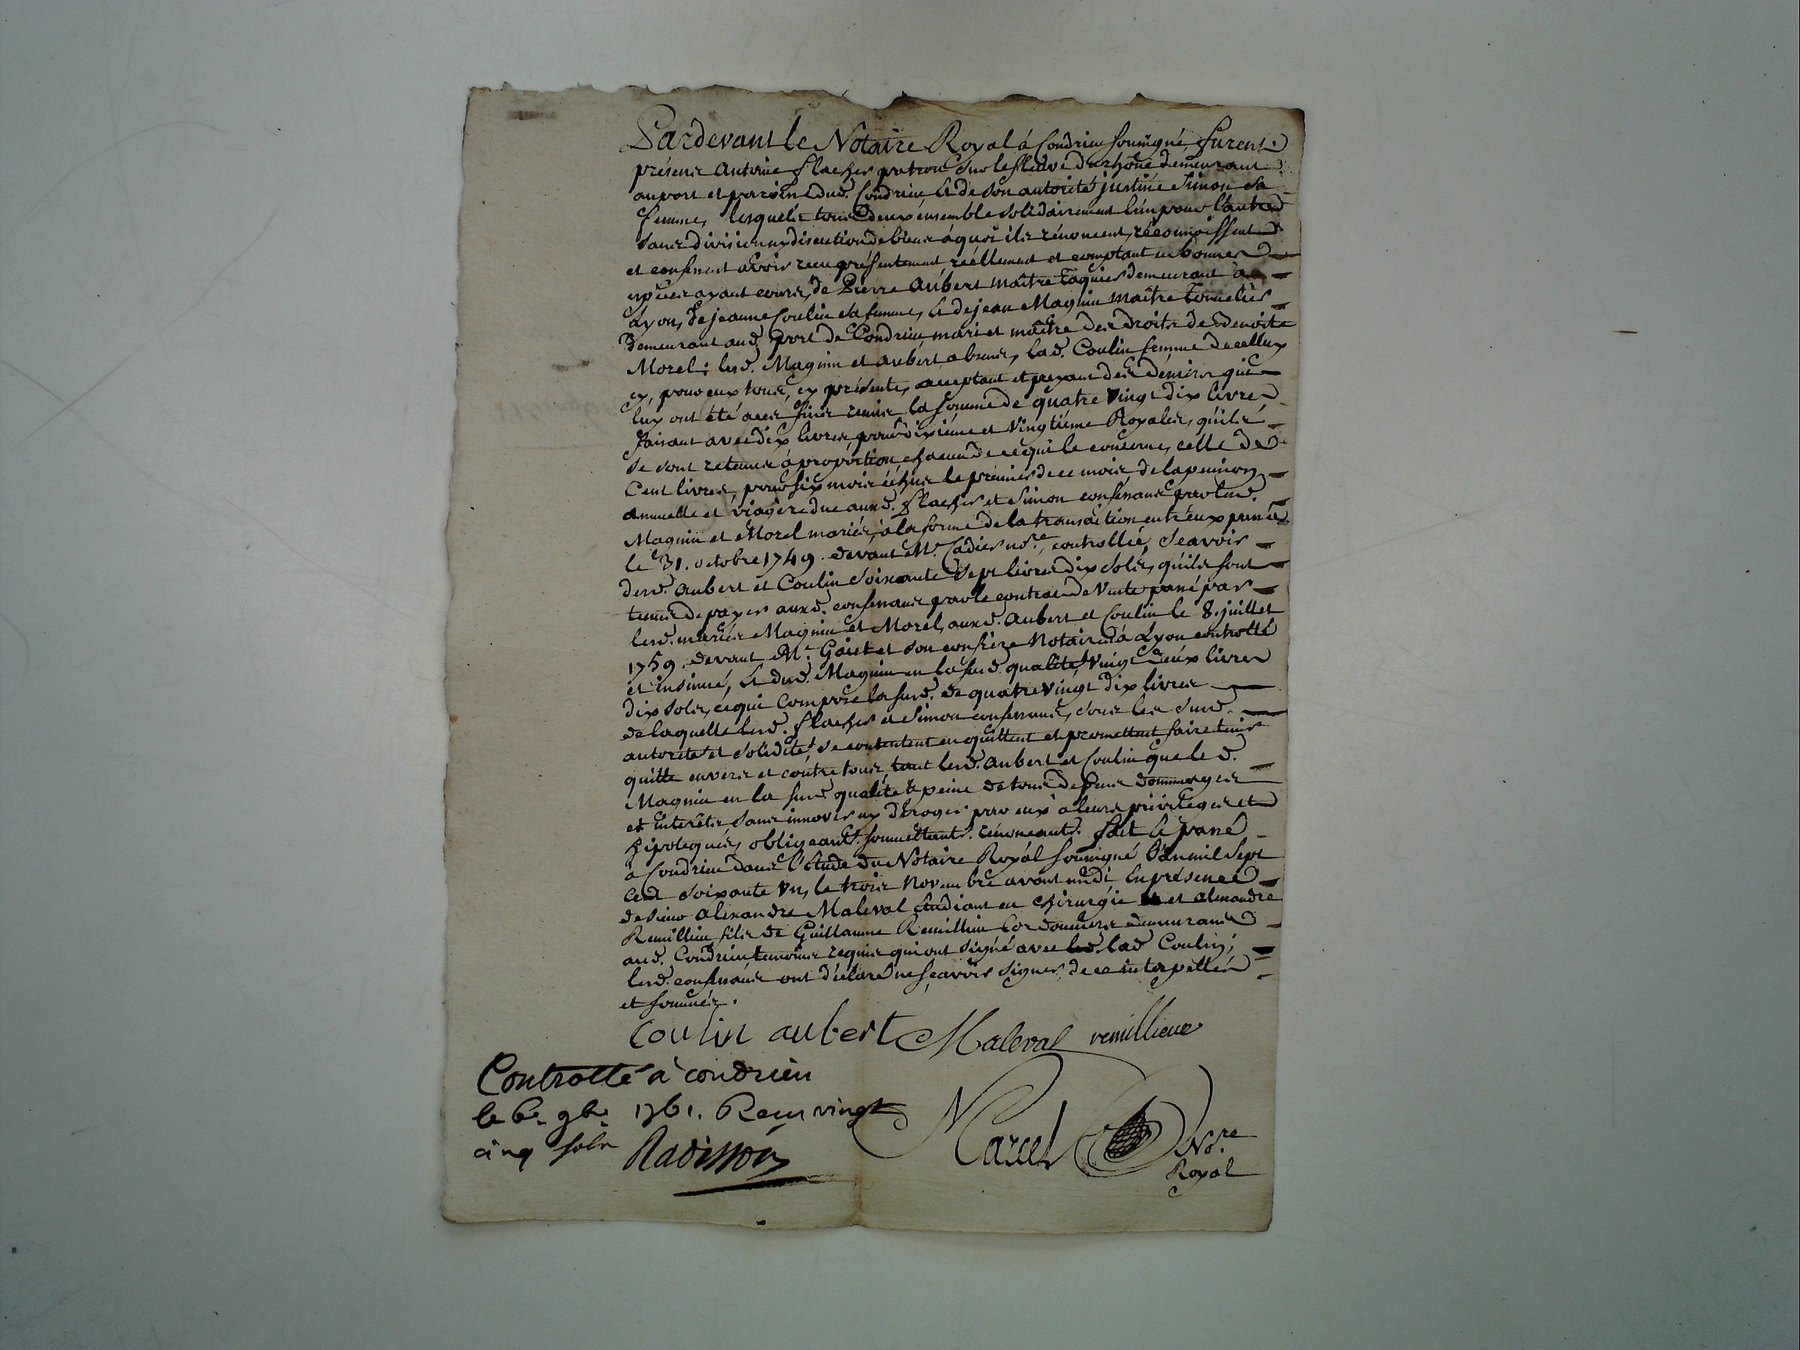 Pardevant le Notaire Royal à Condrieu soussigné, furent
présens Antoine flacher patron sur le fleuve du rhône demeurant
au port et paroisse dud. Condrieu, & de son autorité justine Simon sa
femme, lesquels tous deux ensemble solidairement l'un pour l'autre
sans division ny discution de biens à quoi ils rénoncent, réconnoissent
et confessent avoir reçu présentement réellement et comptant en bonnes
espèces ayant cours, de Pierre Aubert maître
Lyon, de jeanne Coulin sa femme, & de jean Magnin maître tonnelier
demeurant aud. port de Condrieu, mari et maître des droits de
Morel: lesd. Magnin et Aubert absens, lad. Coulin femme de cellui
cy, pour eux tous, cy présente, acceptant et payant des déniers qui
lux ont été à ces fins remis la somme de quatre vingt dix livres
faisant avec dix livres, pour dixième et vingtième Royales, qu'ils
se sont retenus à proportion chacun de ce qui le concerne, celle de
Cent livres, pour six mois échus le prémier de ce mois de la pension
annuelle et viagère due auxd. flacher et Simon confessans par lesd.
Magnin et Morel mariés, à la forme de la transaction entr'eux passée
le 31. octobre 1749. devant Me. Cadier nore., controllée, sçavoir
desd. Aubert et Coulin soixante sept livres dix sols, qu'ils sont
tenus de payer auxd. confessans par le contrat de vente passé par
lesd. mariés Magnin et Morel, auxd. Aubert et Coulin le 8. juillet
1759. devant Me. et son confrère Notaires à Lyon controllé
et insinué, & dud. Magnin en lasusd. qualité, vingt deux livres
dix sols, ce qui compose lasusd. de quatre vingt dix livres
de laquelle lesd. flacher et Simon confessans, sous les susd.
autorité et solidité se contentent en quittent et promettent faire tenir
quitte envers et contre tous, tant lesd. Aubert et Coulin que led.
Magnin en la susd. qualité à peine de tous dépens dommages
et intérêts sans innover ny déroger par eux à leurs privilèges et
hipotèques, obligeants. soumettants. rénonceants. fait & passé
à Condrieu dans l'étude du Notaire Royal soussigné l'an mil sept
cent soixante un, le trois Novembre avant midi en présence
de sieur Alexandre Maleval étudiant en chirurgie et alexandre
Remillieu fils de Guillaume Remillieu Cordonnier demeurans
aud. Condrieu témoins requis qui ont signé avec lad. Coulin;
lesd. confessans ont déclaré ne sçavoir signer de ce interpellés
et sommés.
Coulin aubert Maleval remillieux
Controllé à condrieu
le 6e. 9bre. 1761. Reçu vingt
cinq sols Radisson
Marcel Nore.
Royal